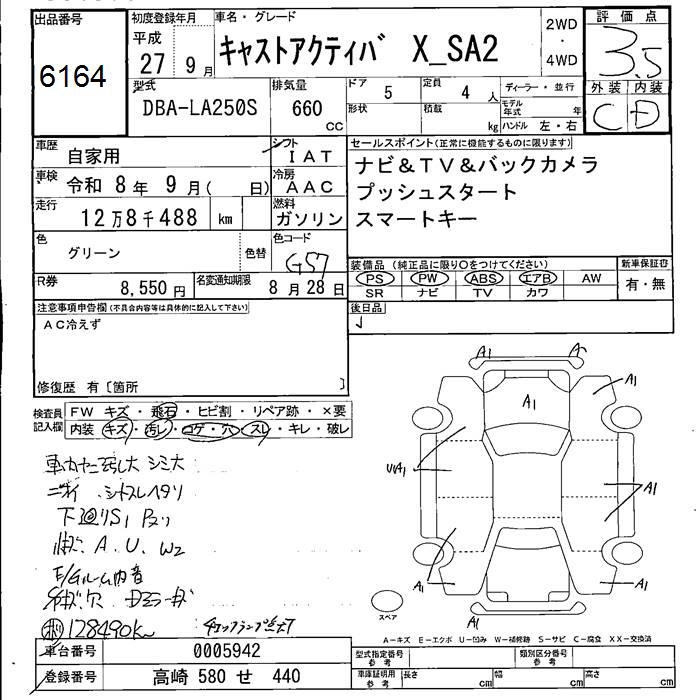 出品番号
6164
初度登録年月
平成
27 9月
車名・グレード
キャストアクティバ X_SA2
2WD
・
4WD
評価点
3.5
外装 内装
C D
型式
DBA-LA250S
排気量
660
CC
ドア 5
形状
定員 4 人
積載 kg
ディーラー・並行
モデル年式 年
ハンドル 左・右
車歴 自家用
シフト IAT
車検 令和 8年 9月( 日)
冷房 AAC
走行 12万8千488 km
燃料 ガソリン
色 グリーン
色替
色コード G57
R券 8,550円
名変通知期限 8月28日
セールスポイント(正常に機能するものに限ります)
ナビ&TV&バックカメラ
プッシュスタート
スマートキー
装備品 (純正品に限り○をつけてください)
PS PW ABS エアB AW
SR ナビ TV カワ
新車保証書
有・無
後日品
注意事項申告欄(不具合内容等は具体的に記入して下さい)
AC冷えず
修復歴 有〔箇所 〕
検査員記入欄
FW キズ・飛石・ヒビ割・リペア跡・×要
内装 キズ・汚レ・コゲ・穴・スレ・キレ・破レ
下廻りS1
A. U. W2
128490K
A1
A
A1
A1
UA1
A1
A1
A1
A1
スペア
A-キズ E-エクボ U-凹み W-補修跡 S-サビ C-腐食 XX-交換済
車台番号 0005942
登録番号 高崎 580 せ 440
型式指定番号 参考
類別区分番号 参考
車庫証明用 参考
長さ cm
幅 cm
高さ cm